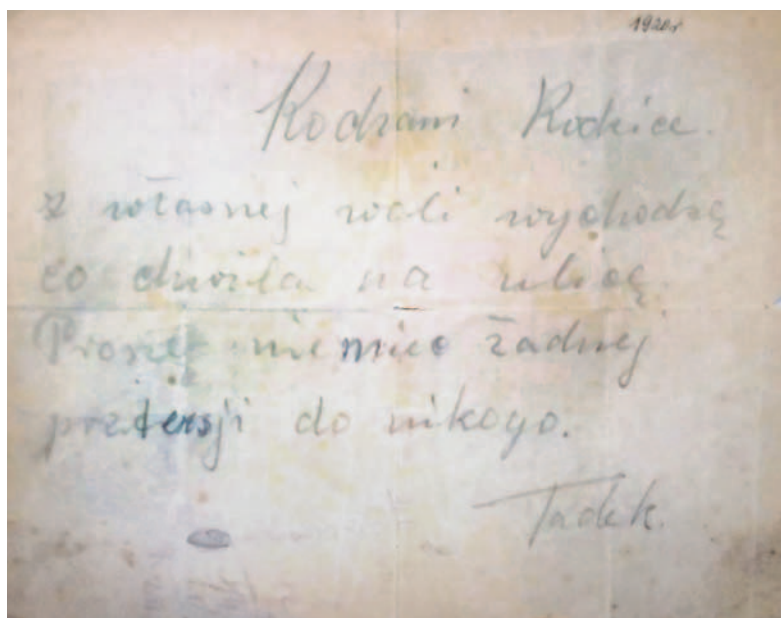 1920r
Kochani Rodzice.
z własnej woli wychodzę
co chwila na ulicę.
Proszę nie mieć żadnej
pretensji do nikogo.
Tadek.